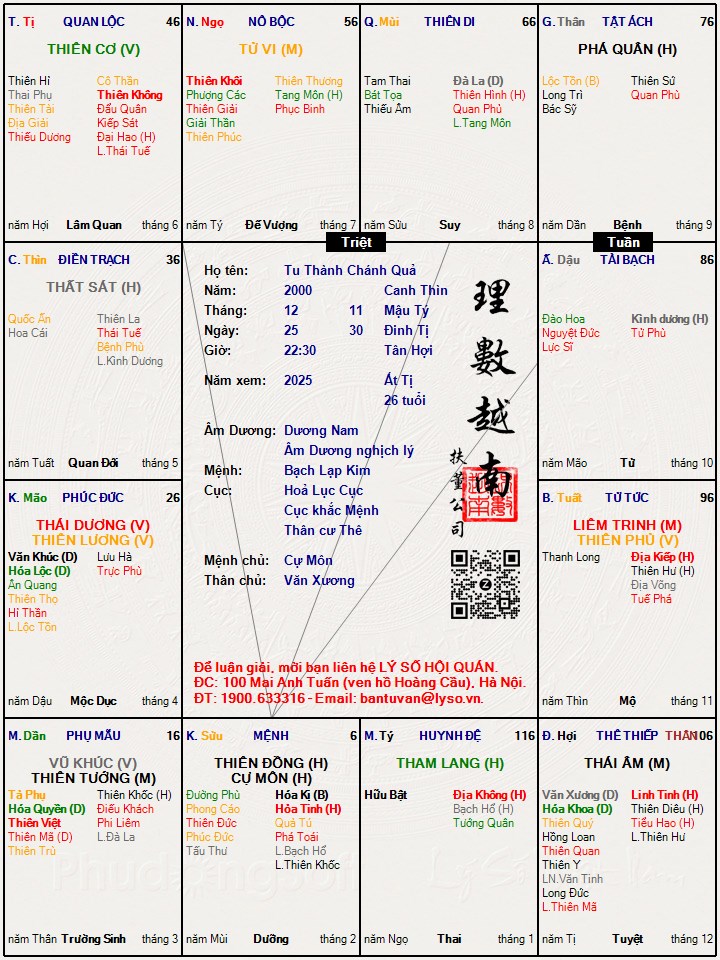 T. Tị QUAN LỘC 46
THIÊN CƠ (V)
Thiên Hỉ Cô Thần
Thai Phụ Thiên Không
Thiên Tài Đẩu Quân
Địa Giải Kiếp Sát
Thiếu Dương Đại Hao (H)
L.Thái Tuế
năm Hợi Lâm Quan tháng 6
N. Ngọ NÔ BỘC 56
TỬ VI (M)
Thiên Khôi Thiên Thương
Phượng Các Tang Môn (H)
Thiên Giải Phục Binh
Giải Thần
Thiên Phúc
năm Tý Đế Vượng tháng 7
Q. Mùi THIÊN DI 66
Tam Thai Đà La (D)
Bát Tọa Thiên Hình (H)
Thiếu Âm Quan Phủ
L.Tang Môn
năm Sửu Suy tháng 8
G. Thân TẬT ÁCH 76
PHÁ QUÂN (H)
Lộc Tồn (B) Thiên Sứ
Long Trì Quan Phù
Bác Sỹ
năm Dần Bệnh tháng 9
Triệt
Tuần
C. Thìn ĐIỀN TRẠCH 36
THẤT SÁT (H)
Quốc Ấn Thiên La
Hoa Cái Thái Tuế
Bệnh Phù
L.Kình Dương
năm Tuất Quan Đới tháng 5
Họ tên: Tu Thành Chánh Quả
Năm: 2000 Canh Thìn
Tháng: 12 11 Mậu Tý
Ngày: 25 30 Đinh Tị
Giờ: 22:30 Tân Hợi
Năm xem: 2025 Ất Tị
26 tuổi
Âm Dương: Dương Nam
Âm Dương nghịch lý
Mệnh: Bạch Lạp Kim
Cục: Hoả Lục Cục
Cục khắc Mệnh
Thân cư Thê
Mệnh chủ: Cự Môn
Thân chủ: Văn Xương
理數越南
扶董公司
Để luận giải, mời bạn liên hệ LÝ SỐ HỘI QUÁN.
ĐC: 100 Mai Anh Tuấn (ven hồ Hoàng Cầu), Hà Nội.
ĐT: 1900.633316 - Email: bantuvan@lyso.vn.
Ấ. Dậu TÀI BẠCH 86
Đào Hoa Kình dương (H)
Nguyệt Đức Tử Phù
Lực Sĩ
năm Mão Tử tháng 10
K. Mão PHÚC ĐỨC 26
THÁI DƯƠNG (V)
THIÊN LƯƠNG (V)
Văn Khúc (D) Lưu Hà
Hóa Lộc (D) Trực Phù
Ân Quang
Thiên Thọ
Hỉ Thần
L.Lộc Tồn
năm Dậu Mộc Dục tháng 4
B. Tuất TỬ TỨC 96
LIÊM TRINH (M)
THIÊN PHỦ (V)
Thanh Long Địa Kiếp (H)
Thiên Hư (H)
Địa Võng
Tuế Phá
năm Thìn Mộ tháng 11
M. Dần PHỤ MẪU 16
VŨ KHÚC (V)
THIÊN TƯỚNG (M)
Tả Phụ Thiên Khốc (H)
Hóa Quyền (D) Điếu Khách
Thiên Việt Phi Liêm
Thiên Mã (D) L.Đà La
Thiên Trù
năm Thân Trường Sinh tháng 3
K. Sửu MỆNH 6
THIÊN ĐỒNG (H)
CỰ MÔN (H)
Đường Phù Hóa Kị (B)
Phong Cáo Hỏa Tinh (H)
Thiên Đức Quả Tú
Phúc Đức Phá Toái
Tấu Thư L.Bạch Hổ
L.Thiên Khốc
năm Mùi Dưỡng tháng 2
M. Tý HUYNH ĐỆ 116
THAM LANG (H)
Hữu Bật Địa Không (H)
Bạch Hổ (H)
Tướng Quân
năm Ngọ Thai tháng 1
Đ. Hợi THÊ THIẾP THÂN 106
THÁI ÂM (M)
Văn Xương (D) Linh Tinh (H)
Hóa Khoa (D) Thiên Diêu (H)
Thiên Quý Tiểu Hao (H)
Hồng Loan L.Thiên Hư
Thiên Quan
Thiên Y
LN.Văn Tinh
Long Đức
L.Thiên Mã
năm Tị Tuyệt tháng 12